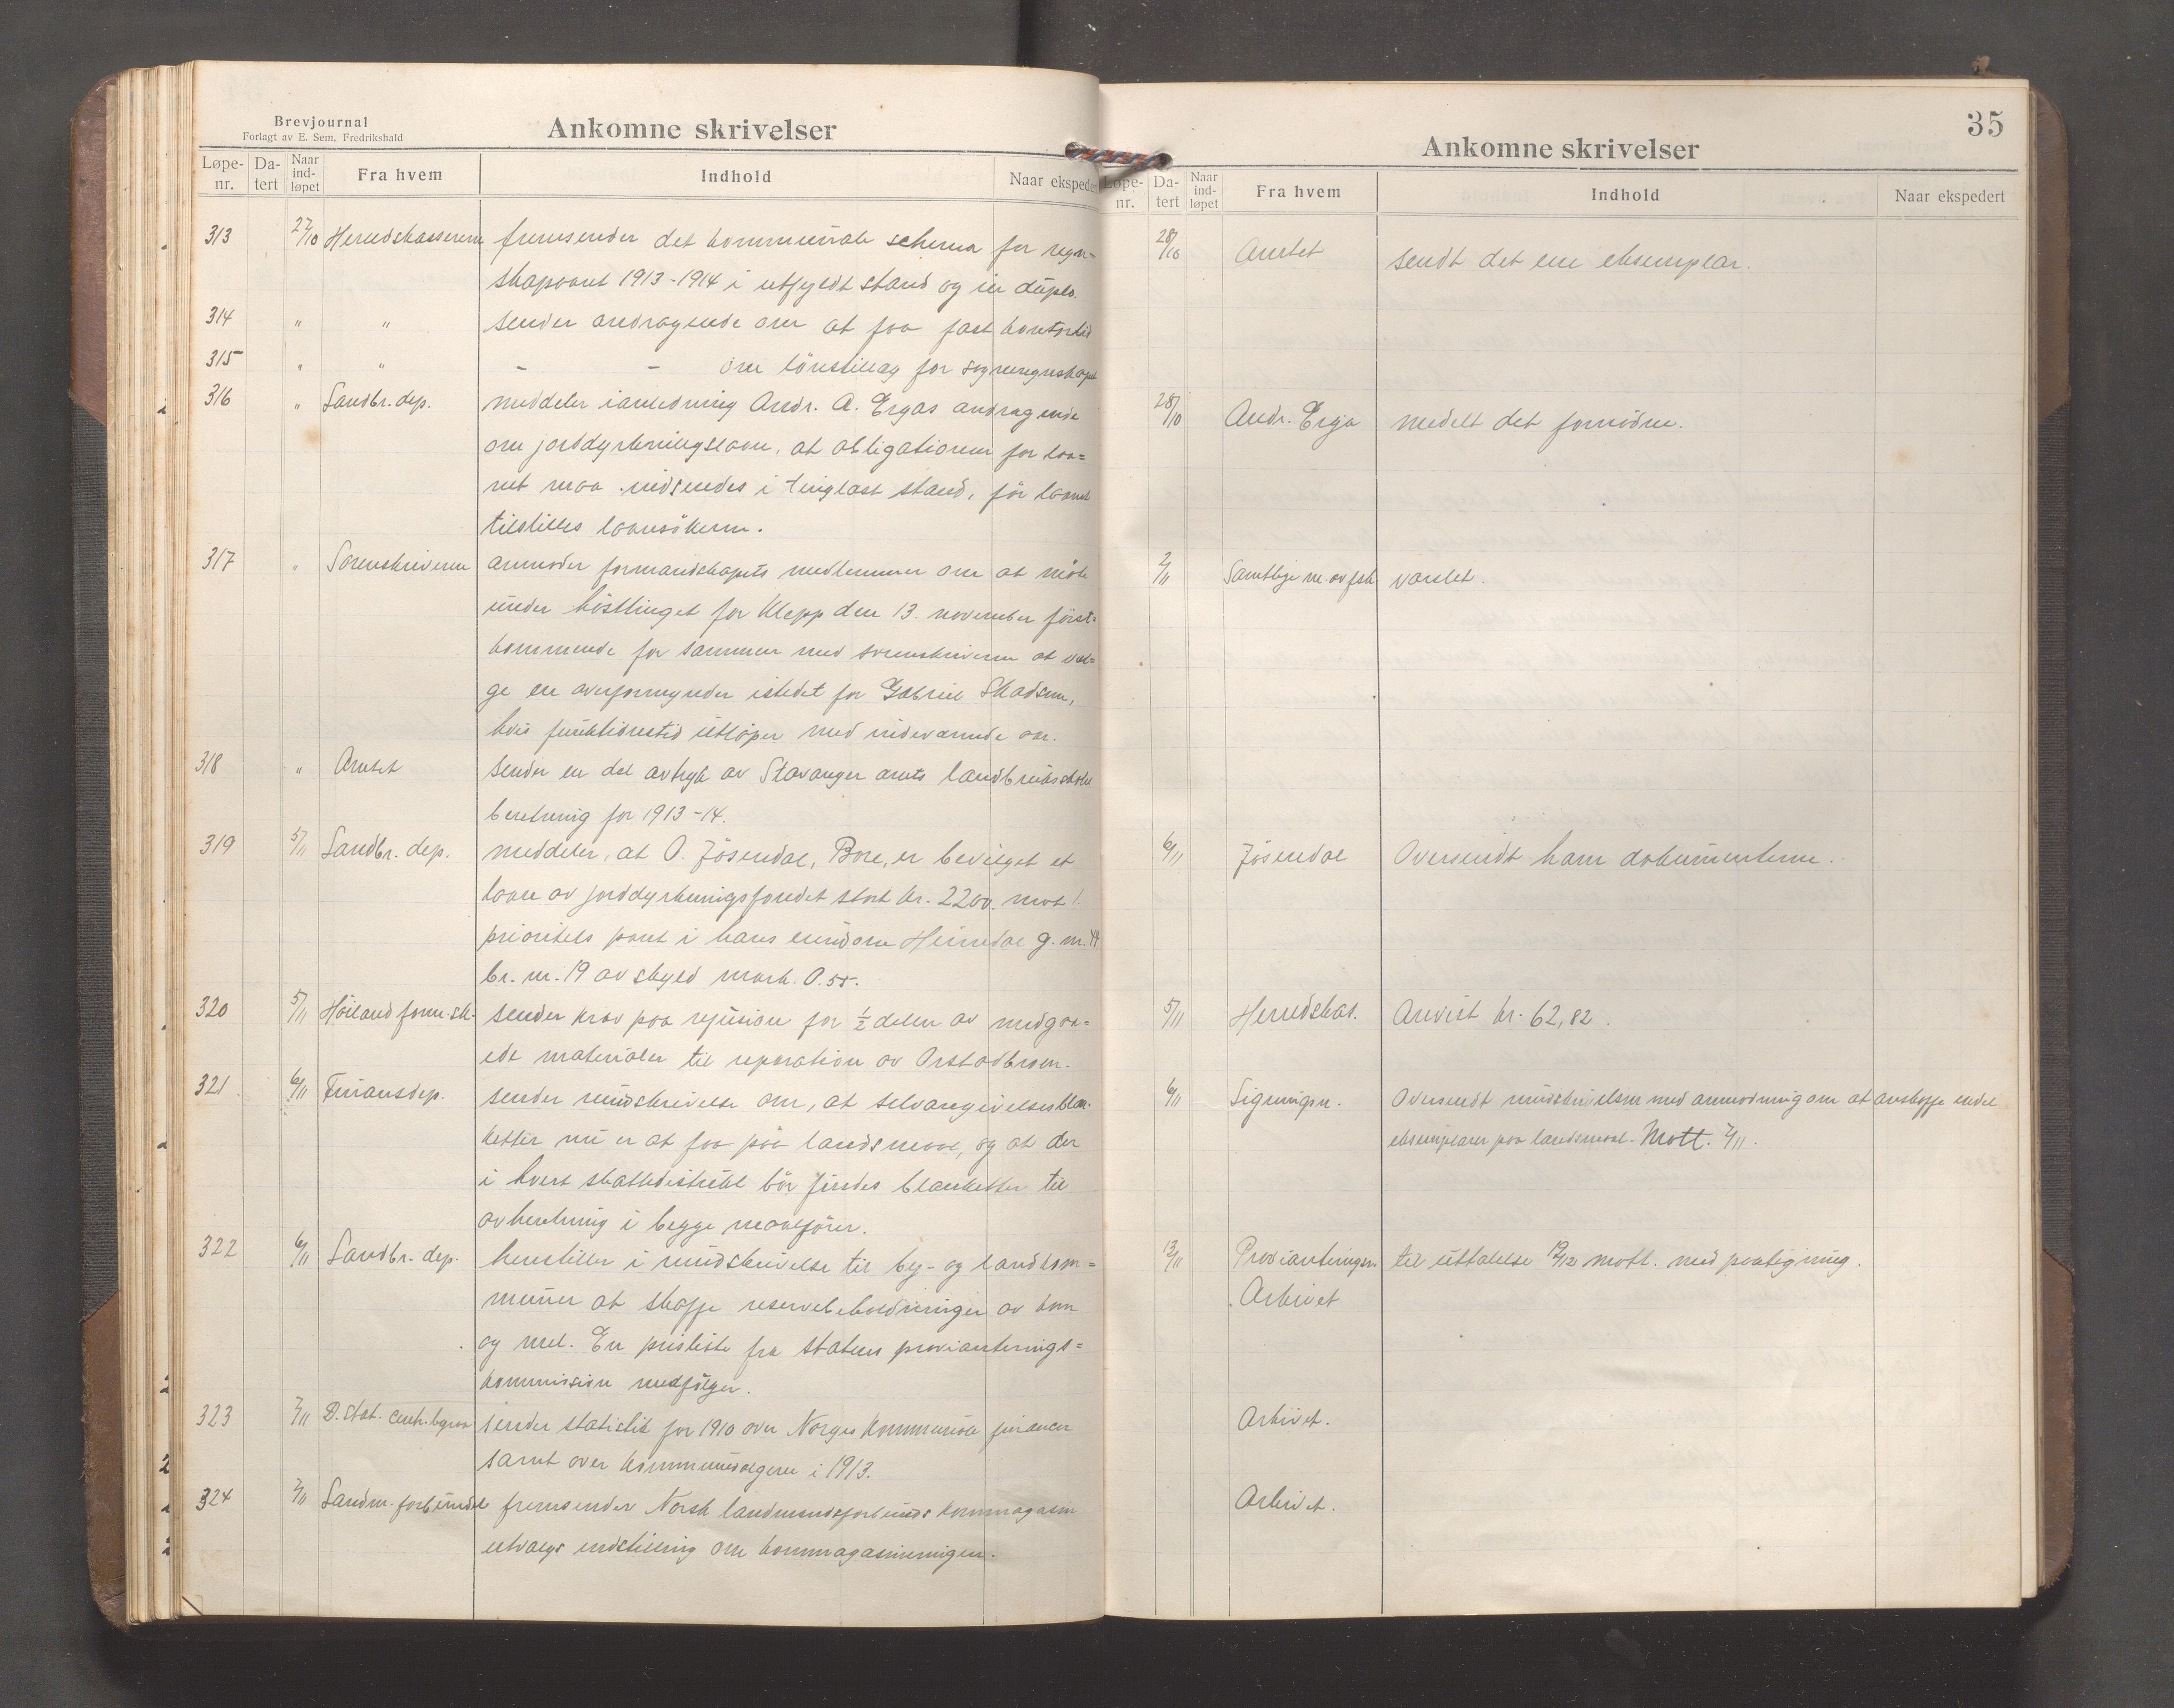 Brevjournal
Forlagt av E. Sem, Fredrikshald
Ankomne skrivelser
Løpe-nr. Da-tert Naar ind-løpet Fra hvem Indhold Naar ekspeder
313 27/10 Herredskassereren fremsender det kommunale schema for regn-
skapsaaret 1913-1914 i utfyldt stand og in duplo.
314 " " sender andragende om at faa fast kontortid
315 " " - - om lönstillæg for sogneregnskapet
316 " Landbr. dep. meddeler ianledning Andr. A. Ergas andragende
om jorddyrkningslaan, at obligationen for laa=
net maa indsendes i tinglæst stand, för laanet
tilstilles laansökeren.
317 " Sorenskriveren anmoder formandskapets medlemmer om at möte
under hösttinget for Klepp den 13. november först=
kommende for sammen med sorenskriveren at væl=
ge en overformynder istedet for Gabriel Skadsem,
hvis funktionstid utlöper med indeværende aar.
318 " Amtet sender en del avtryk av Stavanger amts landbruksskoles
beretning for 1913-14.
319 5/11 Landbr. dep. meddeler, at O. Jösendal, Bore, er bevilget et
laan av jorddyrkningsfondet stort kr. 2200. mot 1.
prioritets pant i hans eiendom Heimdal g. nr. 44
br. nr. 19 av skyld mark. 0.55.
320 5/11 Höiland form.sk. sender krav paa refusion for 1/2 delen av medgaa=
ede materialer til reparation av Orstadbroen.
321 6/11 Finansdep. sender rundskrivelse om, at selvangivelsesblan-
ketter nu er at faa paa landsmaal, og at der
i hvert skattedistrikt bör findes blanketter til
avhentning i begge maalförer.
322 6/11 Landbr. dep. henstiller i rundskrivelse til by- og landkom=
muner at skaffe reservebeholdninger av korn
og mel. En prisliste fra statens provianterings=
kommission medfölger.
323 7/11 D. stat. centr.byraa sender statistik for 1910 over Norges kommunale finanser
samt over kommunevalgene i 1913.
324 7/11 Landm. forbundet fremsender Norsk landmandsforbunds kornmagasin
utvalgs indstilling om kornmagasineringen.
35
Ankomne skrivelser
Løpe-nr. Da-tert Naar ind-løpet Fra hvem Indhold Naar ekspedert
28/10 Amtet sendt det ene eksemplar.
28/10 Andr. Erga medelt det fornödne.
2/11 Samtlige m. av fsk varslet.
6/11 Jösendal Oversendt ham dokumenterne.
5/11 Herredskas. Anvist kr. 62,82.
6/11 Ligningsn. Oversendt rundskrivelsen med anmodning om at anskaffe endel
eksemplarer paa landsmaal. Mott. 7/11.
13/11 Provianteringsn. til uttalelse 12/12 mott. med paategning.
Arkivet
Arkivet.
Arkivet.